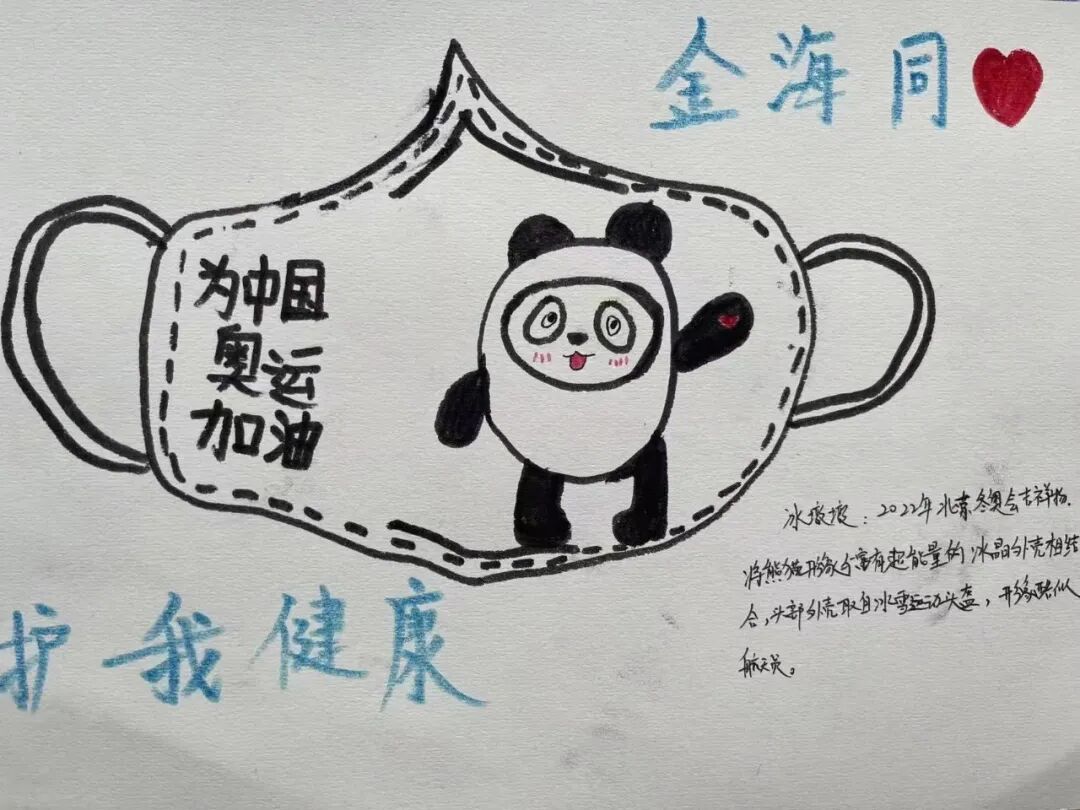 金海同
为中国
奥运
加油
冰墩墩：2022年北京冬奥会吉祥物.
将熊猫形象与富有超能量的冰晶外壳相结
合，头部外壳取自冰雪运动头盔，形象酷似
航天员。
护我健康